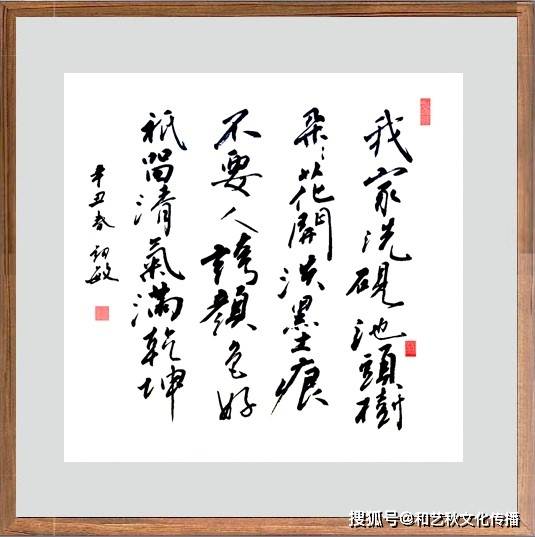 我家洗硯池頭樹
朵〻花開淡墨痕
不要人誇顏色好
祇留清氣滿乾坤
辛丑春 敏
搜狐号@和艺秋文化传播